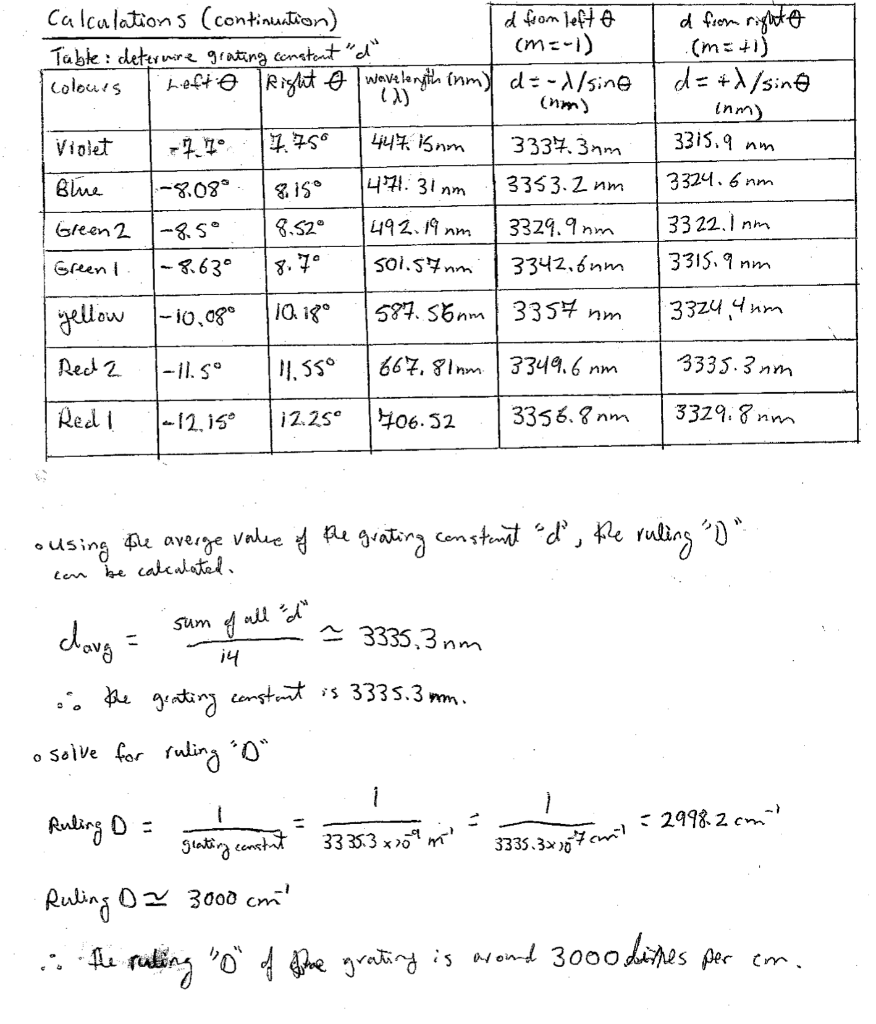 Calculations (continuation)
Table: determine grating constant "d"
d from left θ (m=-1)
d from right θ (m=+1)
Colours | Left θ | Right θ | wavelength (nm) (λ) | d = -λ/sinθ (nm) | d = +λ/sinθ (nm)
Violet | -7.7° | 7.75° | 447.15nm | 3337.3nm | 3315.9 nm
Blue | -8.08° | 8.15° | 471.31 nm | 3353.2 nm | 3324.6 nm
Green 2 | -8.5° | 8.52° | 492.19 nm | 3329.9 nm | 3322.1 nm
Green 1 | -8.63° | 8.7° | 501.57nm | 3342.6nm | 3315.9 nm
yellow | -10.08° | 10.18° | 587.56nm | 3357 nm | 3324.4 nm
Red 2 | -11.5° | 11.55° | 667.81nm | 3349.6 nm | 3335.3 nm
Red 1 | -12.15° | 12.25° | 706.52 | 3356.8 nm | 3329.8 nm
• using the averge value of the grating constant "d", the ruling "D"
can be calculated.
davg = sum of all "d" / 14 ≃ 3335.3 nm
∴ the grating constant is 3335.3 nm.
• solve for ruling "D"
Ruling D = 1 / grating constnt = 1 / 3335.3 x 10⁻⁹ m⁻¹ = 1 / 3335.3 x 10⁻⁷ cm⁻¹ = 2998.2 cm⁻¹
Ruling D ≃ 3000 cm⁻¹
∴ the ruling "D" of the grating is around 3000 lines per cm.